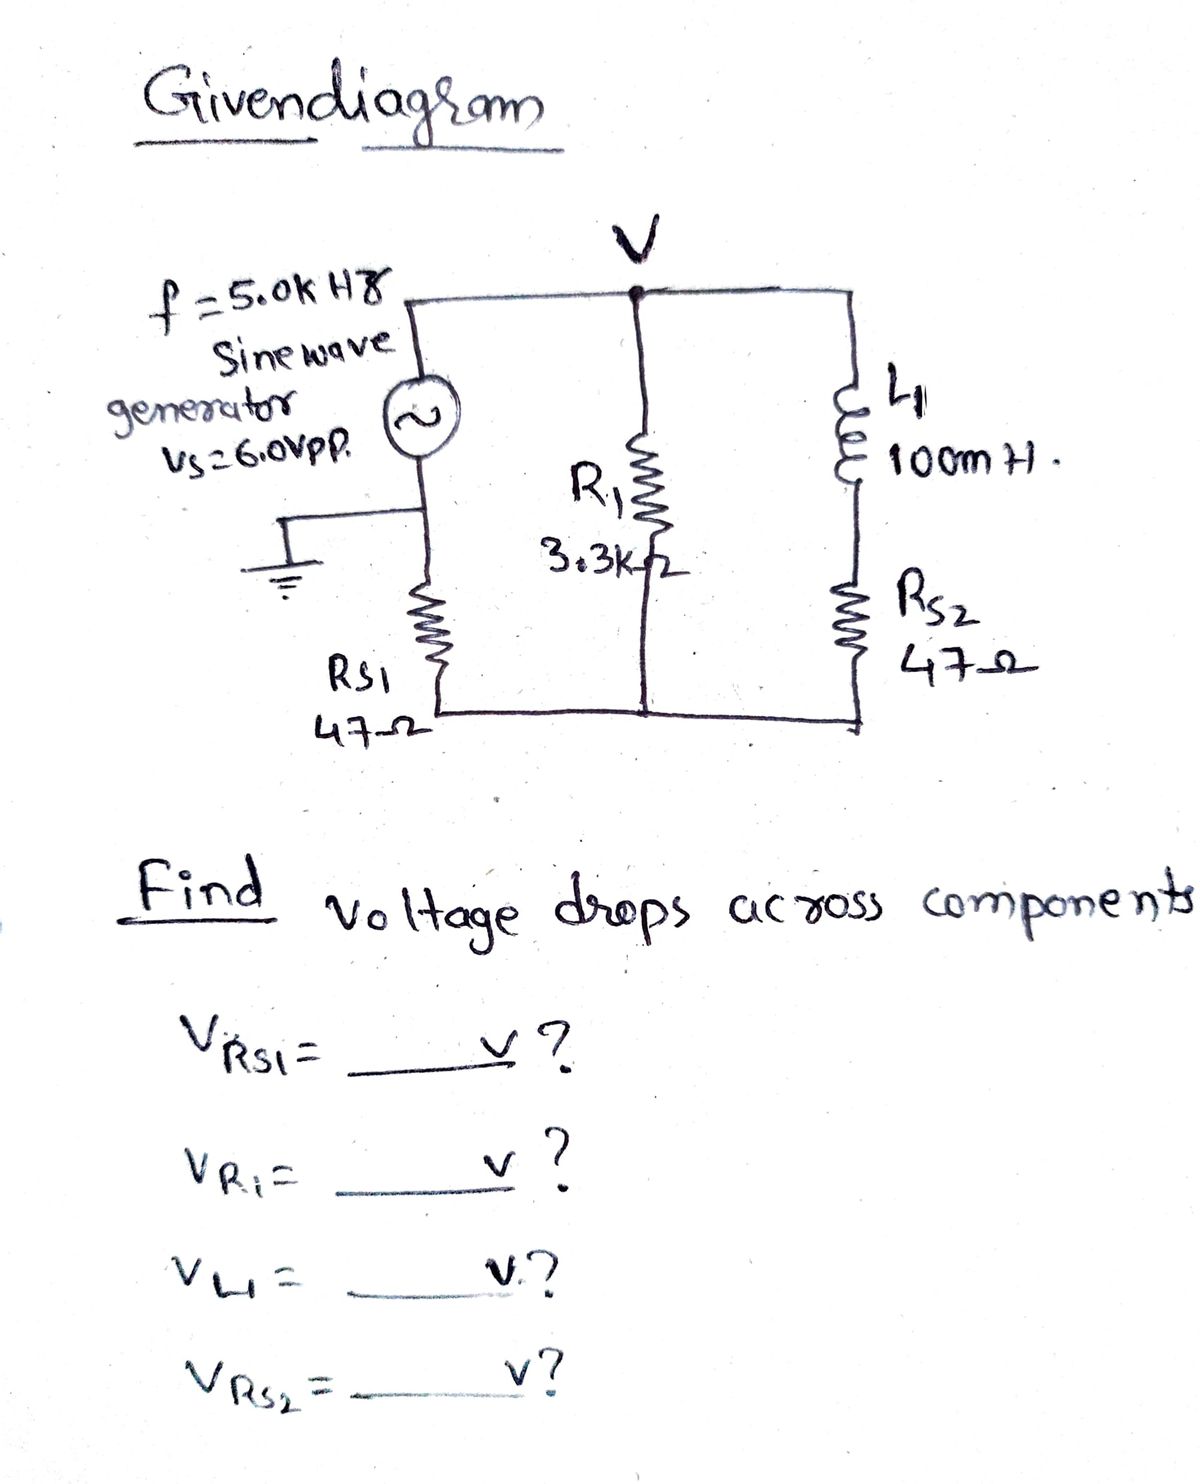 Givendiagram
V
f = 5.0K Hz
Sine wave
generator
Vs = 6.0Vpp.
L1
100mH.
R1
3.3KΩ
RS2
47Ω
RS1
47Ω
Find Voltage drops across components
VRS1 = ____ V ?
VR1 = ____ V ?
VL1 = ____ V. ?
VRS2 = ____ V ?